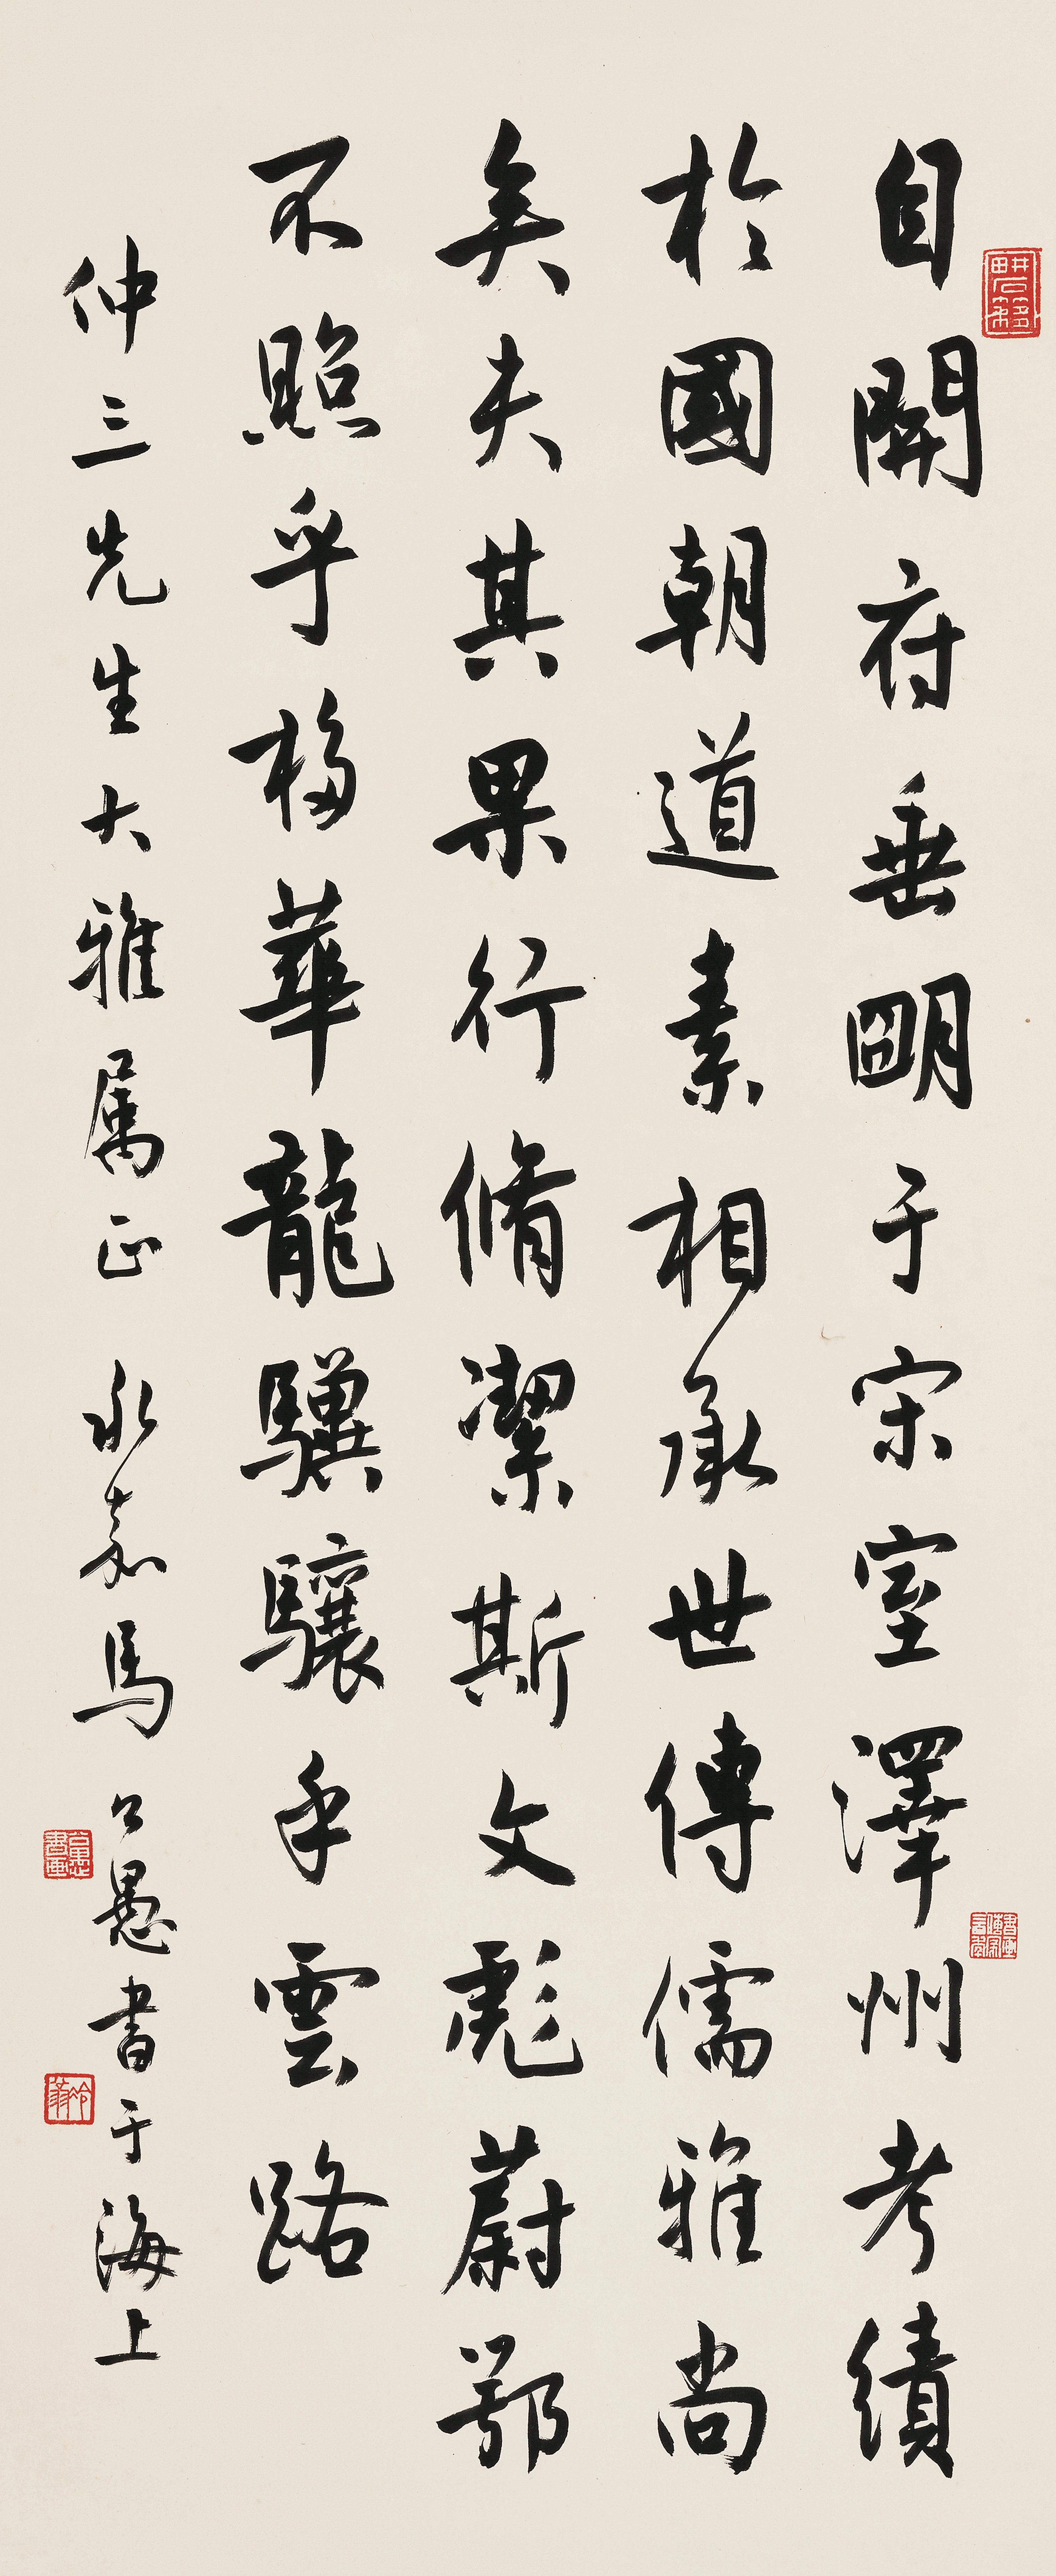 自開府垂明于宋室澤州考績
於國朝道素相承世傳儒雅尚
矣夫其果行脩潔斯文彪蔚鄂
不照乎栘華龍驥驤乎雲路
仲三先生大雅属正 永嘉馬公愚書于海上